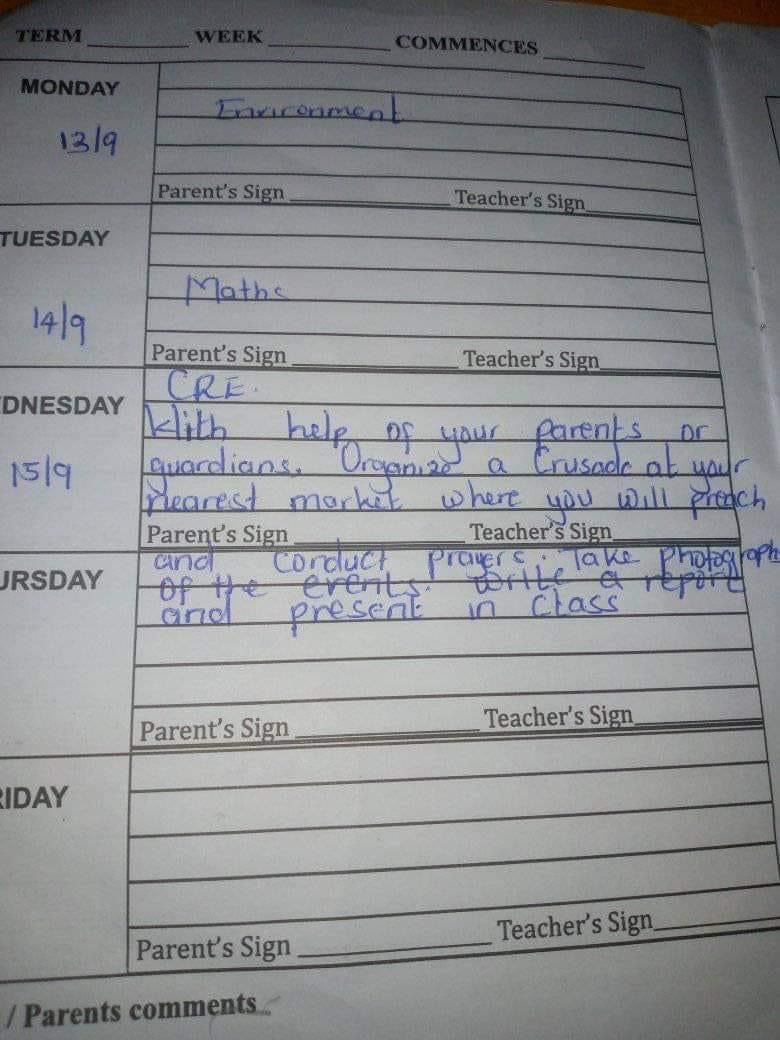 TERM ____ WEEK ____ COMMENCES ____
MONDAY
13/9
Environment
Parent's Sign ____ Teacher's Sign ____
TUESDAY
14/9
Maths
Parent's Sign ____ Teacher's Sign ____
DNESDAY
15/9
CRE.
With help of your parents or
guardians. Organize a Crusade at your
nearest market where you will preach
Parent's Sign ____ Teacher's Sign ____
URSDAY
and conduct prayers. Take photograph
of the events. Write a report
and present in class
Parent's Sign ____ Teacher's Sign ____
RIDAY
Parent's Sign ____ Teacher's Sign ____
/ Parents comments